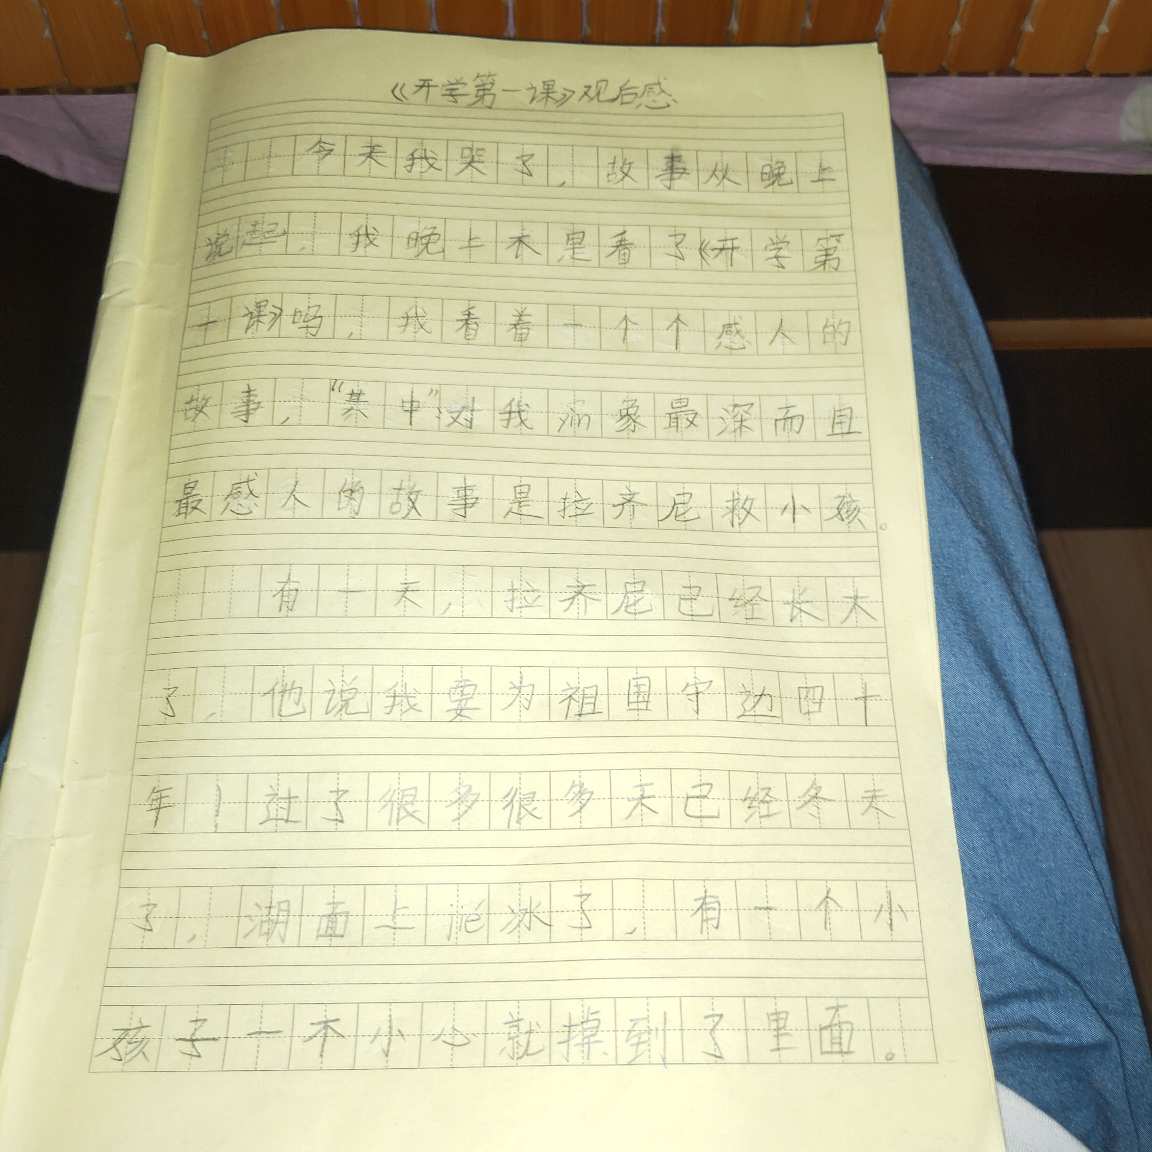 《开学第一课》观后感
今天我哭了，故事从晚上
说起，我晚上不是看了《开学第
一课》吗，我看着一个个感人的
故事，“其中”对我 象最深而且
最感人的故事是拉齐尼救小孩。
有一天，拉齐尼已经长大
了，他说我要为祖国守边四十
年！过了很多很多天已经冬天
了，湖面上 冰了，有一个小
孩子一不小心就掉到了里面。